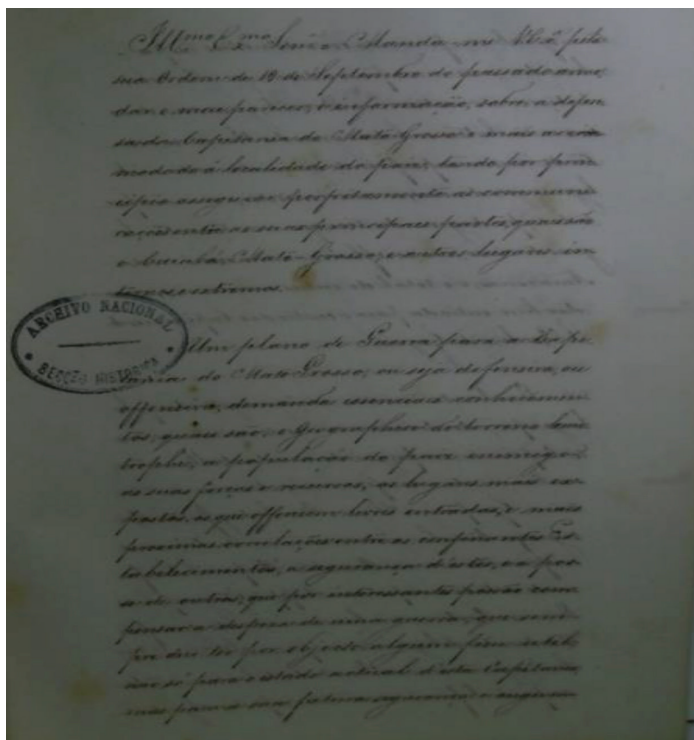 Ill.mo Ex.mo Senr. Manda-me V. Ex.a pela
sua Ordem de 19 de Septembro do passado anno
dar o meu parecer, e informação, sobre a defen-
sa da Capitania de Mato Grosso e mais accom-
modada á localidade do paiz, tendo por prin-
cipio assegurar perfeitamente as communi-
cações entre os seus principaes pontos, quaes são
o Cuiabá, Mato-Grosso, e outros lugares in-
ternos e extremos.
ARCHIVO NACIONAL
SECÇÃO HISTORICA
Um plano de Guerra para a Capi-
tania do Mato Grosso, ou seja defensiva, ou
offensiva, demanda essenciaes conhecimen-
tos, quaes são, o Geographico do terreno limi-
trophe, a população do paiz enemigo,
as suas forças e recursos, os lugares mais ex-
postos, os que offerecem livres entradas, e mais
proximas correlações entre os confinantes Es-
tabelecimentos, a segurança d'estes, e a pos-
se de outros, que por interessantes possão com-
pensar a despeza de uma guerra, que sem-
pre deve ter por objecto algum fim util,
não só para o estado actual d'esta Capitania,
mas para a sua futura segurança e